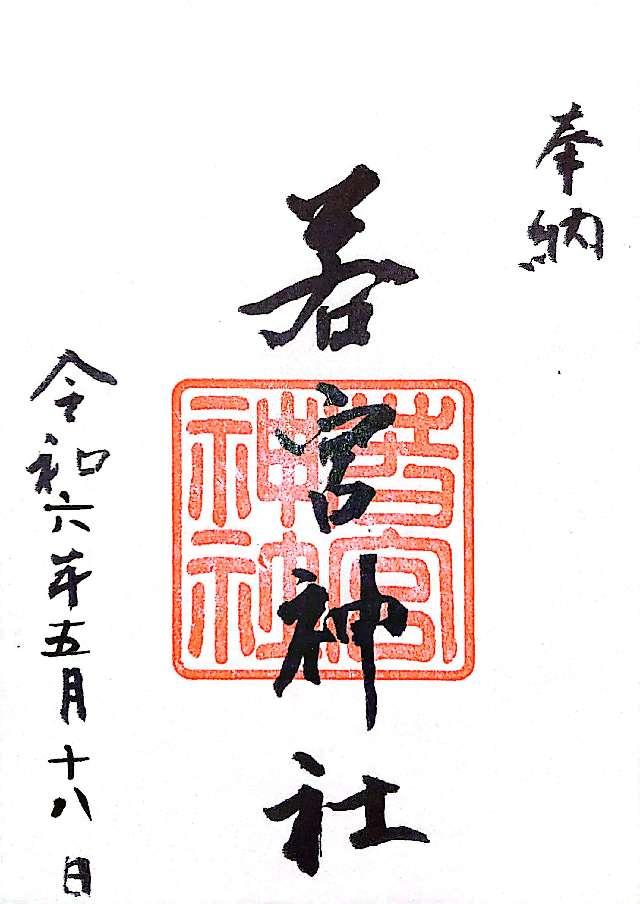 奉納
若宮神社
若宮
神社
令和六年五月十八日